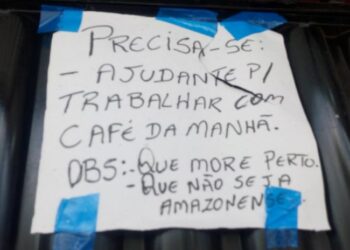 PRECISA-SE:
- AJUDANTE P/
TRABALHAR COM
CAFÉ DA MANHÃ.
OBS:-QUE MORE PERTO.
-QUE NÃO SEJA
AMAZONENSE.